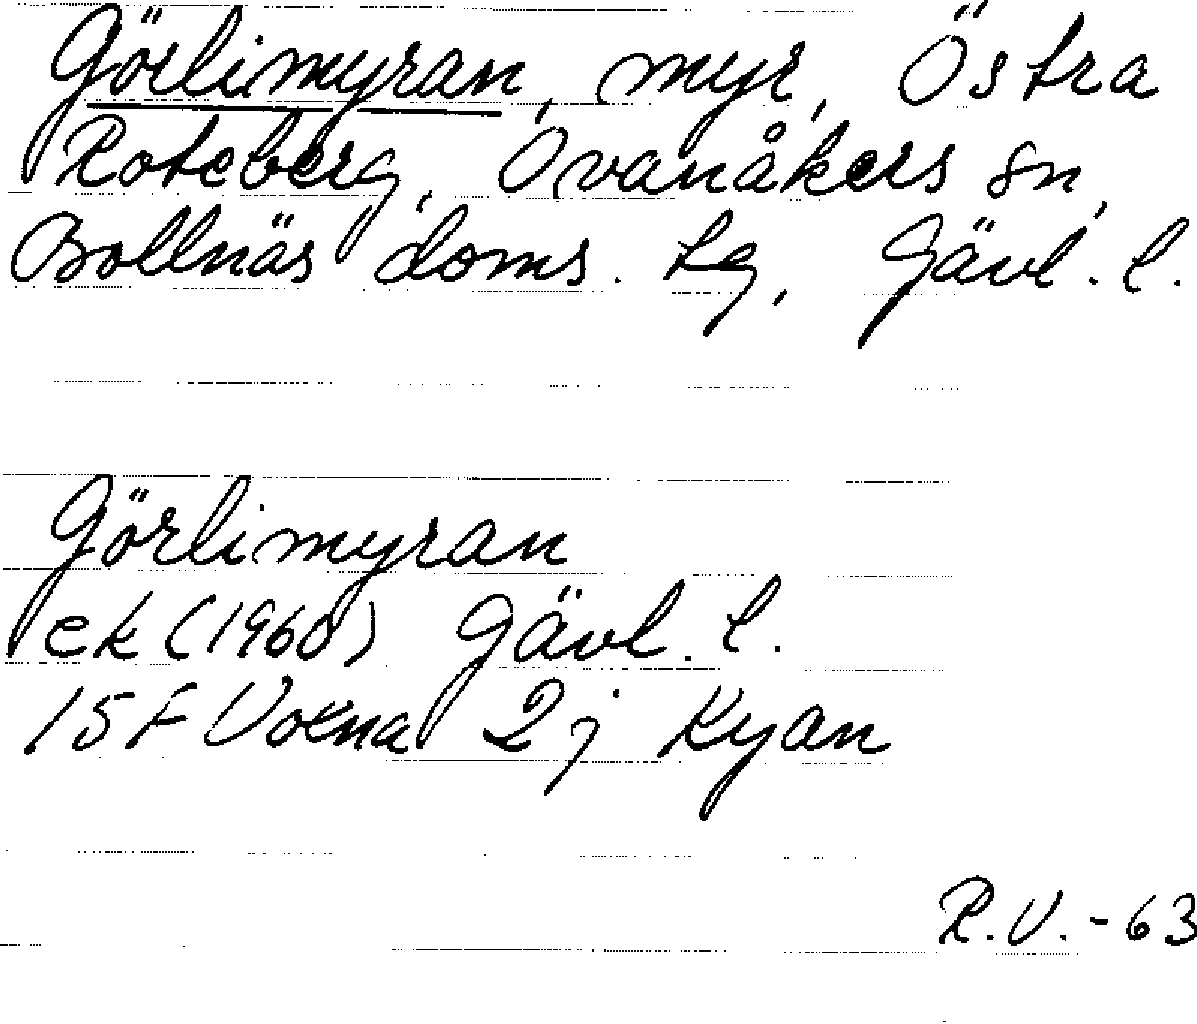 Görlimyran, myr, Östra
Roteberg, Ovanåkers sn,
Bollnäs doms. tg, Gävl. l.
Görlimyran
ek (1960) Gävl. l.
15F Voxna 2j Kyan
R.V. - 63